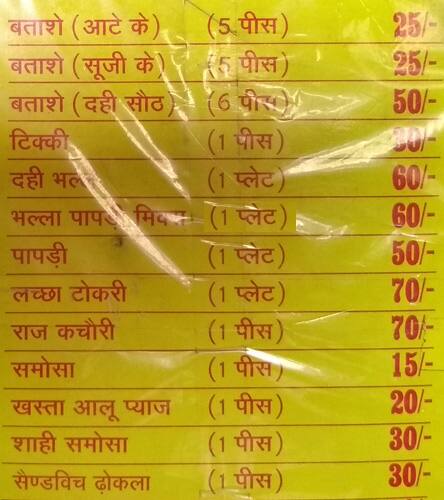 बताशे (आटे के) (5 पीस) 25/-
बताशे (सूजी के) (5 पीस) 25/-
बताशे (दही सौठ) (6 पीस) 50/-
टिक्की (1 पीस)
दही (1 प्लेट) 60/-
भल्ला पापड़ी मिक्स (1 प्लेट) 60/-
पापड़ी (1 प्लेट) 50/-
लच्छा टोकरी (1 प्लेट) 70/-
राज कचौरी (1 पीस) 70/-
समोसा (1 पीस) 15/-
खस्ता आलू प्याज (1 पीस) 20/-
शाही समोसा (1 पीस) 30/-
सैण्डविच ढ़ोकला (1 पीस) 30/-